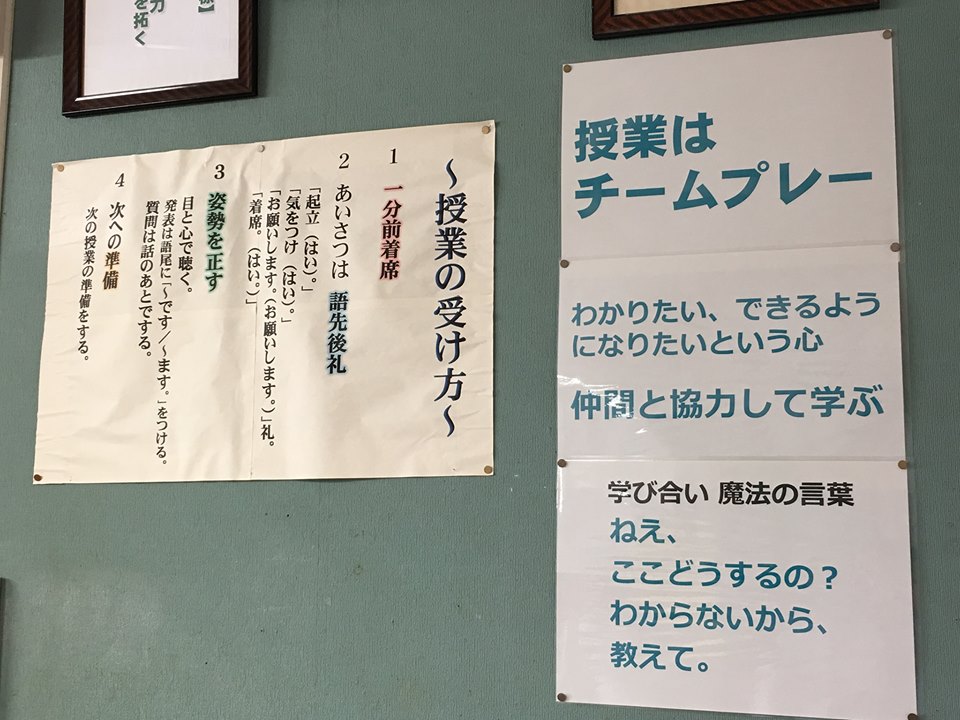 を拓く
力
～授業の受け方～
1 一分前着席
2 あいさつは 語先後礼
「起立（はい）。」
「気をつけ（はい）。」
「お願いします。（お願いします。）」礼。
「着席。（はい。）」
3 姿勢を正す
目と心で聴く。
発表は語尾に「～です／～ます。」をつける。
質問は話のあとでする。
4 次への準備
次の授業の準備をする。
授業は
チームプレー
わかりたい、できるよう
になりたいという心
仲間と協力して学ぶ
学び合い 魔法の言葉
ねえ、
ここどうするの？
わからないから、
教えて。